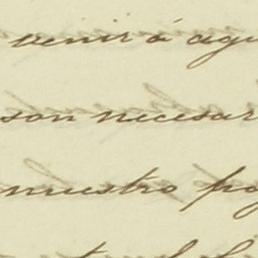 venir á aqu
son necesar
nuestro po